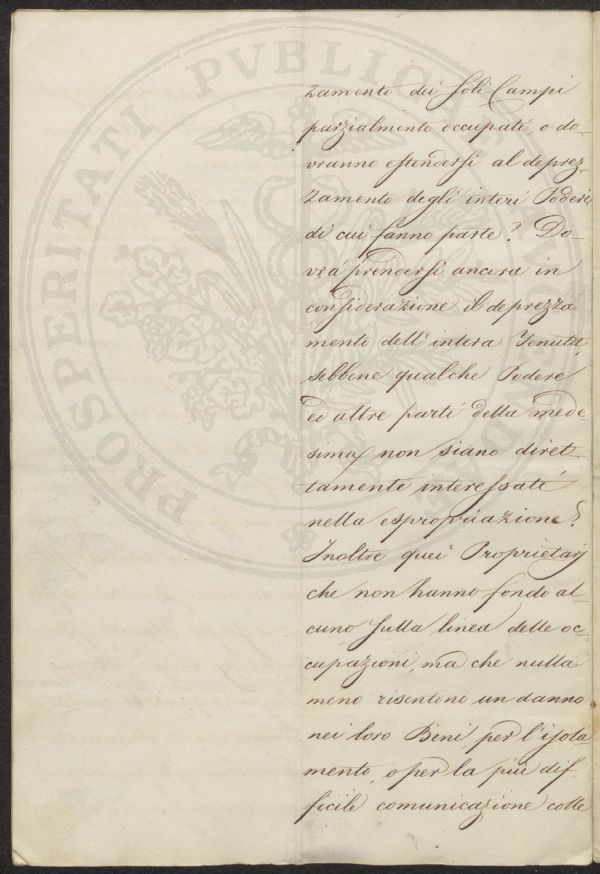 PROSPERITATI PVBLICAE
zamento dei soli Campi
parzialmente occupati, o do-
vranno estendersi al deprez-
zamento degli interi Poderi
di cui fanno parte? Do-
vrà prendersi ancora in
considerazione il deprezza
mento dell'intera Tenuta
sebbene qualche Podere
ed altre parti della mede
sima non siano diret-
tamente interessati
nella espropriazione?
Inoltre quei Proprietarj
che non hanno fondo al-
cuno sulla linea delle oc-
cupazioni, ma che nulla
meno risentono un danno
nei loro Beni per l'isola-
mento, o per la più dif-
ficile comunicazione colle